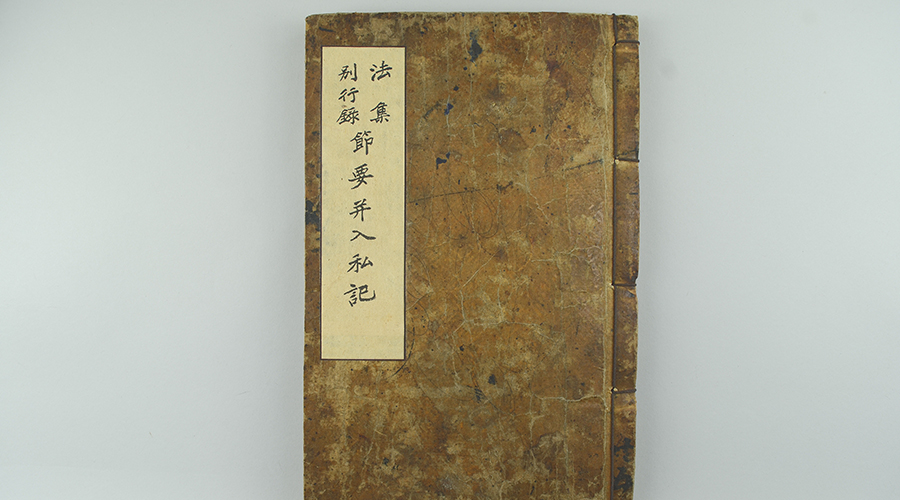 法集
別行錄
節要并入私記